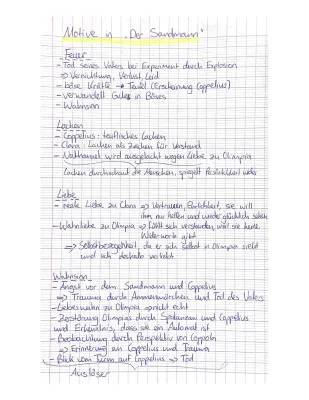 Motive in „Der Sandmann"
Feuer
- Tod seines Vaters bei Experiment durch Explosion
⇒ Vernichtung, Verlust, Leid
- böse Kräfte → Teufel (Erscheinung Coppelius)
- verwandelt Gutes in Böses
- Wahnsinn
Lachen
- Coppelius: teuflisches Lachen
- Clara: Lachen als Zeichen für Verstand
- Nathanael wird ausgelacht wegen Liebe zu Olimpia
Lachen durchschaut die Menschen, spiegelt Persönlichkeit wider
Liebe
- reale Liebe zu Clara ⇒ Vertrauen, Ehrlichkeit, sie will
ihm nur helfen und wieder glücklich sehen
- Wahnliebe zu Olimpia ⇒ fühlt sich verstanden, weil sie keine
Widerworte gibt
⇒ Selbstbezogenheit, da er sich selbst in Olimpia sieht
und sich deshalb verliebt
Wahnsinn
- Angst vor dem Sandmann und Coppelius
⇒ Trauma durch Ammenmärchen und Tod des Vaters
- Liebeswahn zu Olimpia ⇒ nicht echt
- Zerstörung Olimpias durch Spalanzani und Coppelius
und Erkenntnis, dass sie ein Automat ist
- Beobachtung durch Perspektiv von Coppola
⇒ Erinnerung an Coppelius und Trauma
- Blick vom Turm auf Coppelius ⇒ Tod
Auslöser